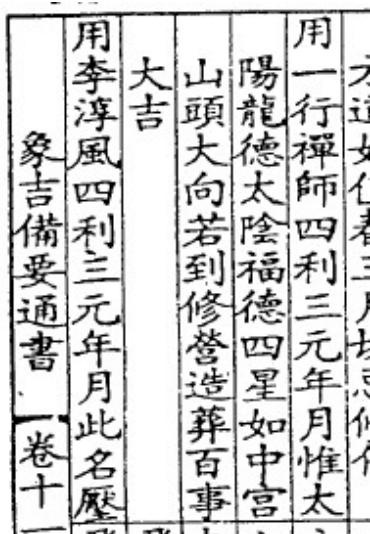 用一行禪師四利三元年月惟太
陽龍德太陰福德四星如中宮
山頭大向若到修營造葬百事
大吉
用李淳風四利三元年月此名壓
象吉備要通書 卷十